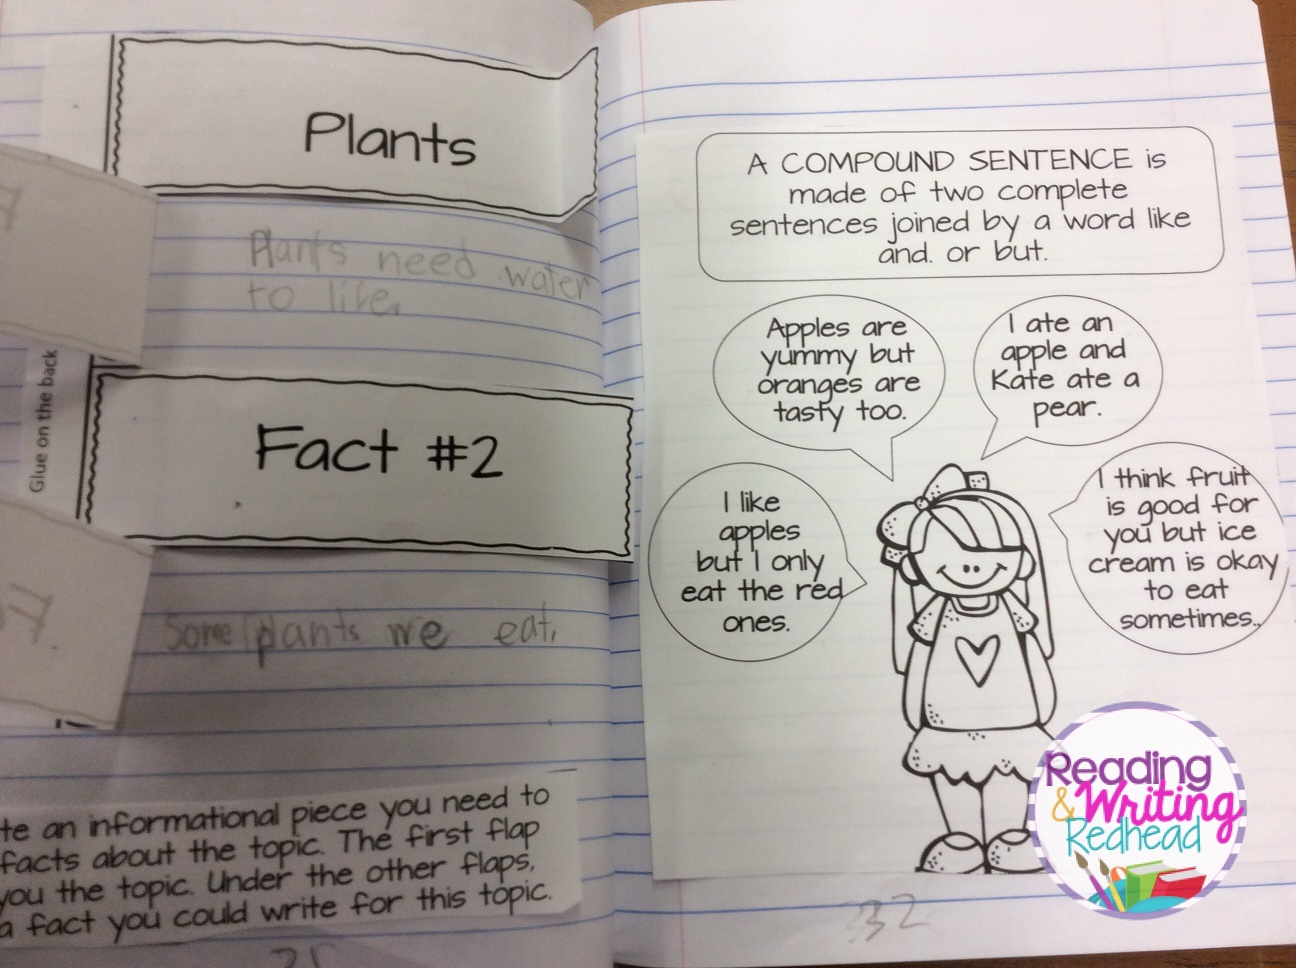 Plants
Plants need water
to life.
Glue on the back
Fact #2
Some plants we eat.
te an informational piece you need to
facts about the topic. The first flap
you the topic. Under the other flaps,
a fact you could write for this topic.
A COMPOUND SENTENCE is
made of two complete
sentences joined by a word like
and. or but.
Apples are
yummy but
oranges are
tasty too.
I ate an
apple and
Kate ate a
pear.
I like
apples
but I only
eat the red
ones.
I think fruit
is good for
you but ice
cream is okay
to eat
sometimes..
32
Reading
& Writing
Redhead